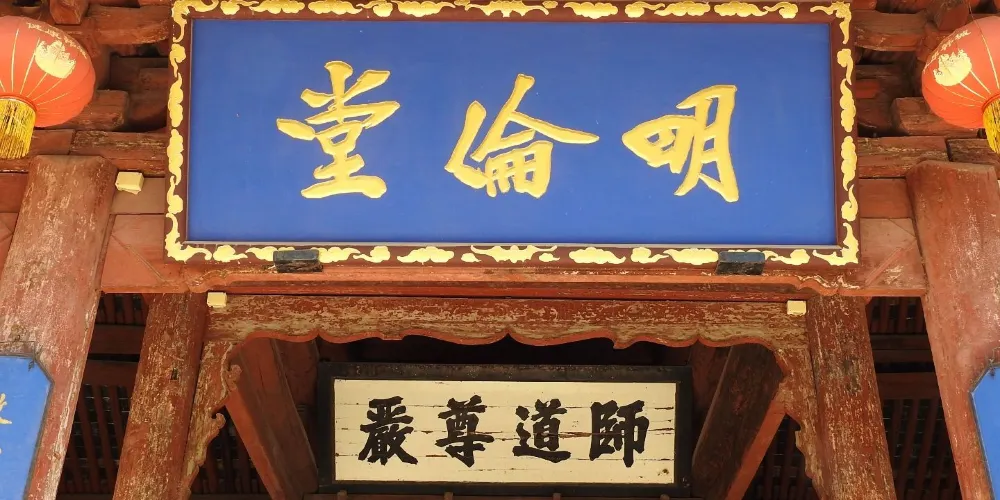 明倫堂
師道尊嚴